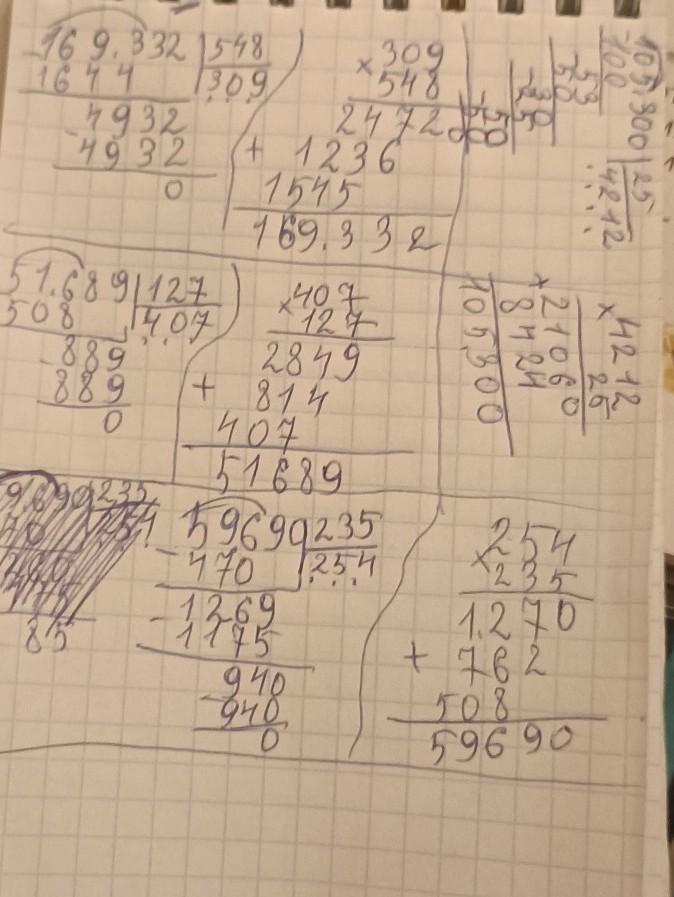 169.332 548
1644 309
4932
4932
0
309
× 548
2472
+ 1236
1545
169.332
105.300 25
-100 4212
53
50
30
-25
50
-50
0
51.689 127
508 407
-889
889
0
×407
127
2849
+ 814
407
51689
×4212
25
21060
+ 8424
105.300
85
59690 235
-470 254
-1269
1175
940
-940
0
×254
235
1.270
+ 762
508
59690